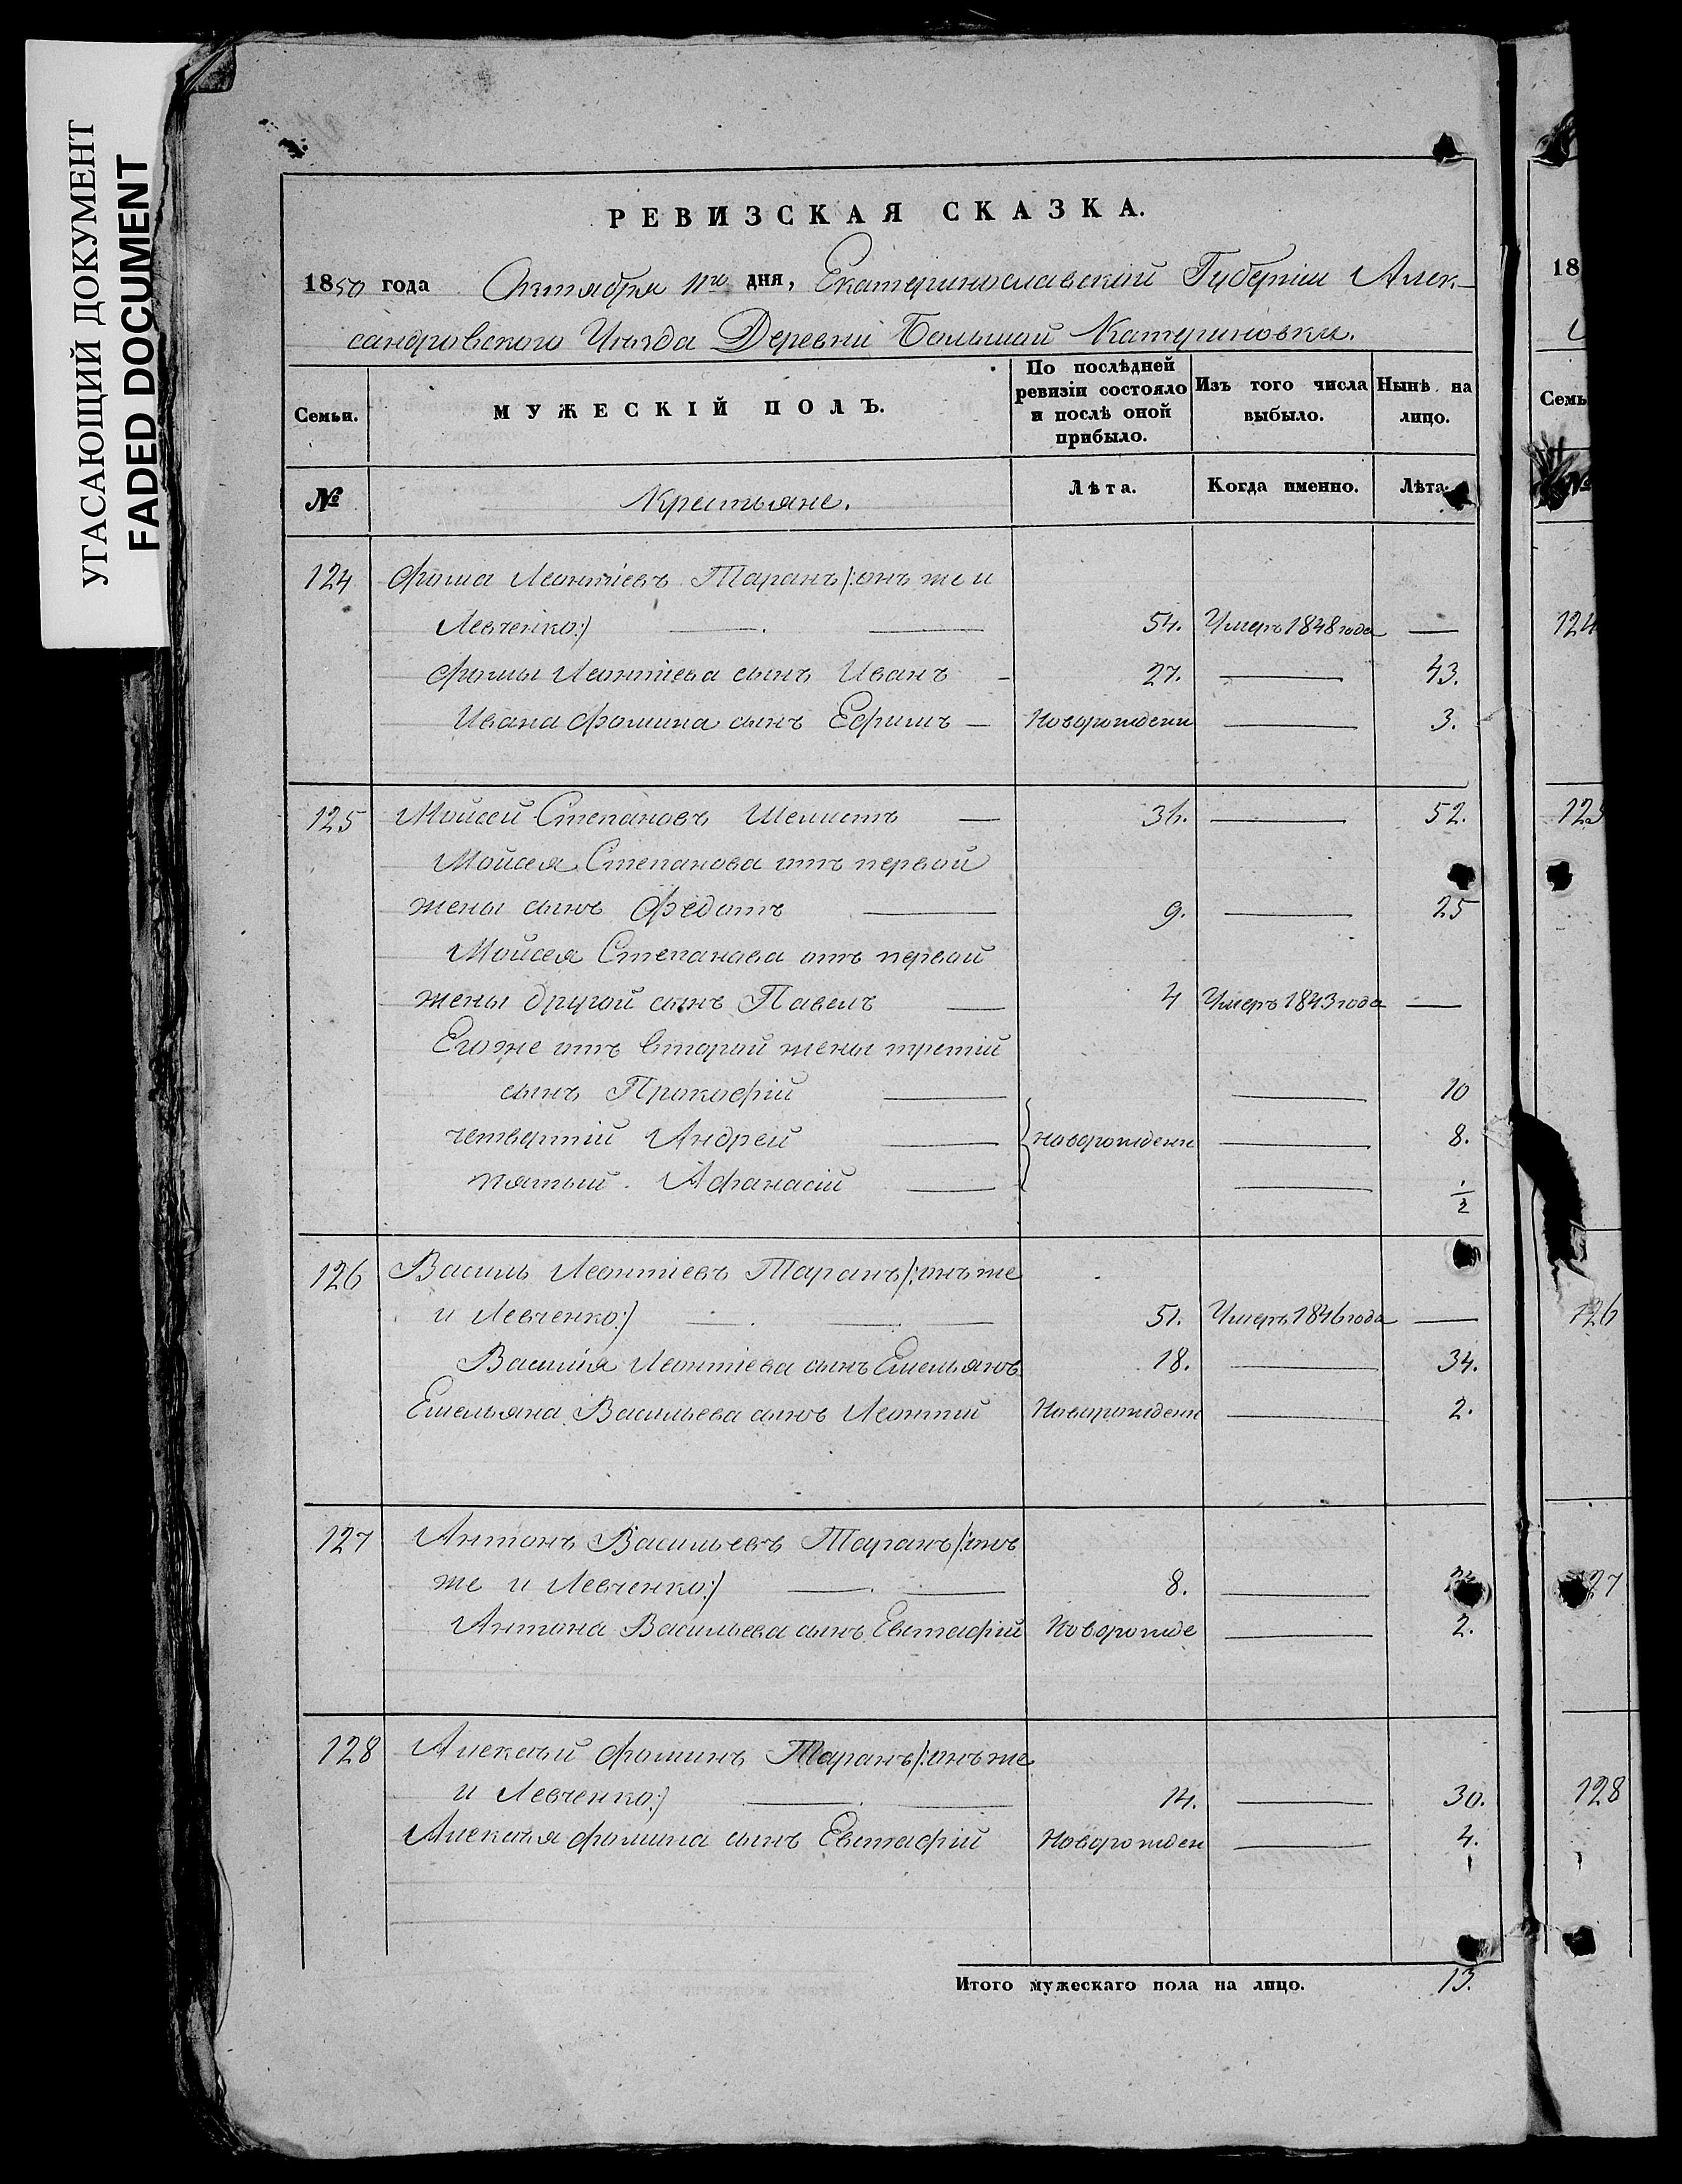 УГАСАЮЩИЙ ДОКУМЕНТ
FADED DOCUMENT
РЕВИЗСКАЯ СКАЗКА.
1850 года Октября 11го дня, Екатеринославской Губерніи Алек-
сандровскаго Уѣзда Деревни Большой Катериновки.
Семьи. МУЖЕСКІЙ ПОЛЪ. По послѣдней ревизіи состояло и послѣ оной прибыло. Изъ того числа выбыло. Нынѣ на лицо.
№ Крестьяне. Лѣта. Когда именно. Лѣта.
124 Фома Леонтіевъ Таранъ /:онъ же и
Левченко:/ 54. Умеръ 1848 года —
Фомы Леонтіева сынъ Иванъ - 27. — 43.
Ивана Фомина сынъ Ефимъ — Новорожденн — 3.
125 Мойсей Степановъ Шелистъ — 36. — 52.
Мойсея Степанова отъ первой
жены сынъ Федотъ — 9. — 25
Мойсея Степанова отъ первой
жены другой сынъ Павелъ — 4 Умеръ 1843 года —
Его же отъ второй жены третій
сынъ Прокофій — — 10
четвертій Андрей — новорожденн — 8.
пятый. Афанасій — — 1/2
126 Василь Леонтіевъ Таранъ /:онъ же
и Левченко:/ — 51. Умеръ 1846 года —
Василія Леонтіева сынъ Емельянъ 18. — 34.
Емельяна Васильева сынъ Леонтій Новорожденн — 2.
127 Антонъ Васильевъ Таранъ /:онъ
же и Левченко:/ — 8. —
Антона Васильева сынъ Евстафій Новорожде — 2.
128 Алексѣй Фоминъ Таранъ /:онъ же
и Левченко:/ — 14. — 30.
Алексѣя Фомина сынъ Евстафій Новорожден — 4.
Итого мужескаго пола на лицо. 13.
18
Семь
№
124
125
126
127
128